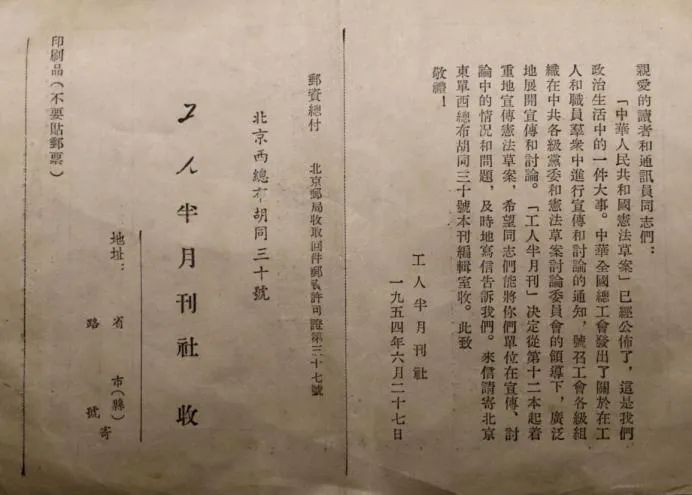 親愛的讀者和通訊員同志們：
「中華人民共和國憲法草案」已經公佈了，這是我們
政治生活中的一件大事。中華全國總工會發出了關於在工
人和職員羣衆中進行宣傳和討論的通知，號召工會各級組
織在中共各級黨委和憲法草案討論委員會的領導下，廣泛
地展開宣傳和討論。「工人半月刊」决定從第十二本起着
重地宣傳憲法草案，希望同志們能將你們單位在宣傳、討
論中的情況和問題，及時地寫信告訴我們。來信請寄北京
東單西總布胡同三十號本刊編輯室收。此致
敬禮！
工人半月刊社
一九五四年六月二十七日
郵資總付　北京郵局收取回件郵資許可證第三十七號
北京西總布胡同三十號
工人半月刊社　收
地址：　省　市（縣）
路　號　寄
印刷品（不要貼郵票）